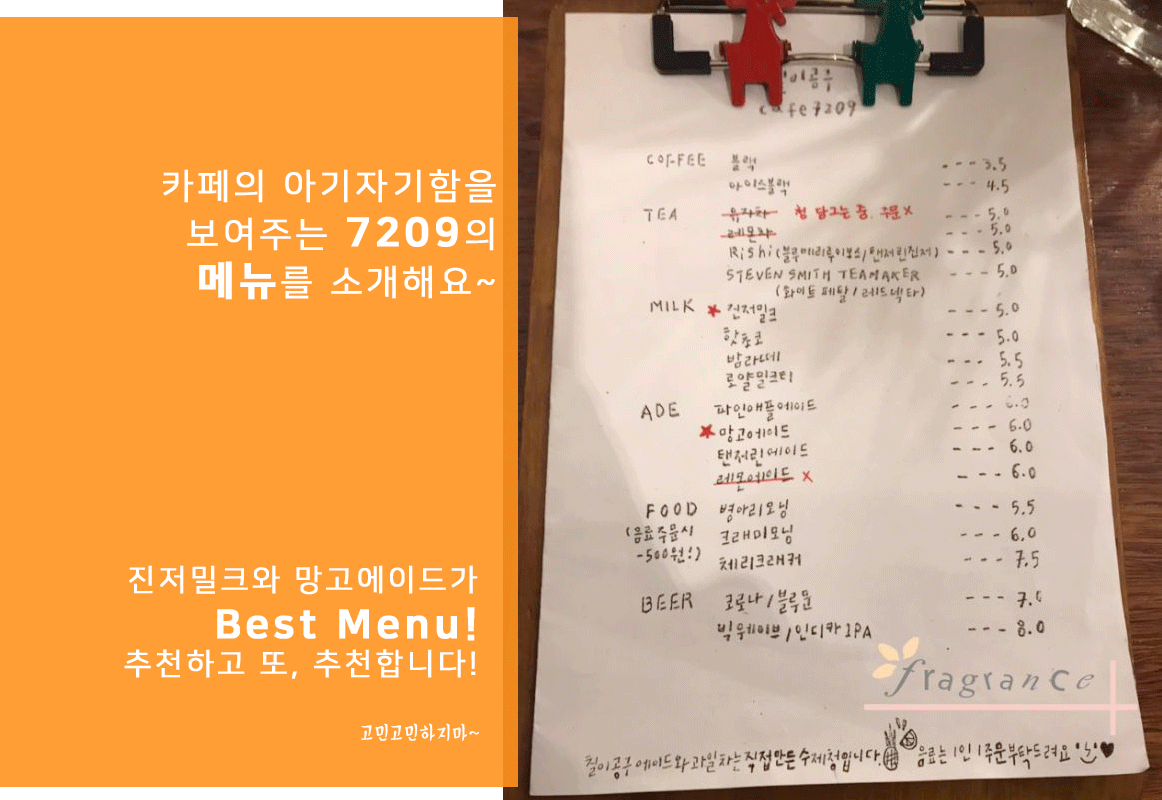 카페의 아기자기함을
보여주는 7209의
메뉴를 소개해요~
진저밀크와 망고에이드가
Best Menu!
추천하고 또, 추천합니다!
고민고민하지마~
이공구
cafe7209
COFFEE 블랙 --- 3.5
아이스블랙 --- 4.5
TEA 유자차 청 담그는 중. 주문X --- 5.0
레몬차 --- 5.0
Rishi (블루베리루이보스/탠저린진저) --- 5.0
STEVEN SMITH TEAMAKER --- 5.0
(화이트 페탈/레드넥타)
MILK ★ 진저밀크 --- 5.0
핫초코 --- 5.0
밤라떼 --- 5.5
로얄밀크티 --- 5.5
ADE 파인애플에이드 --- 6.0
★ 망고에이드 --- 6.0
탠저린에이드 --- 6.0
레몬에이드 X --- 6.0
FOOD 병아리모닝 --- 5.5
(음료주문시 크래미모닝 --- 6.0
-500원!) 체리크래커 --- 7.5
BEER 코로나/블루문 --- 7.0
빅웨이브/인디카IPA --- 8.0
fragrance
칠이공구 에이드와 과일차는 직접만든 수제청입니다. 음료는 1인 1주문 부탁드려요